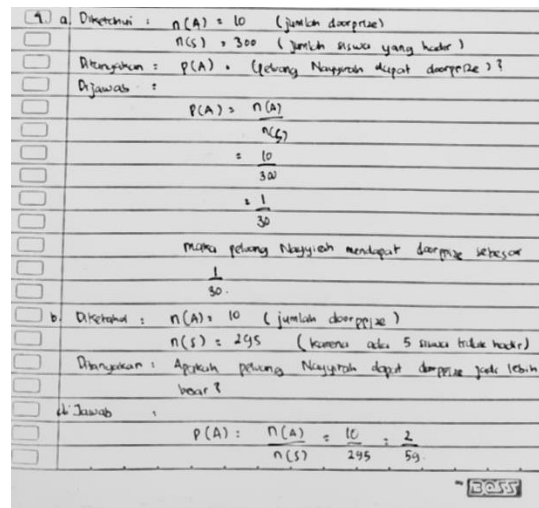 4. a. Diketahui : n(A) = 10 (jumlah doorprize)
n(S) = 300 (jumlah siswa yang hadir)
Ditanyakan = P(A) = (peluang Nayyirah dapat doorprize)?
Dijawab :
P(A) = n(A)
n(S)
= 10
300
= 1
30
maka peluang Nayyirah mendapat doorprize sebesar
1
30.
b. Diketahui : n(A) = 10 (jumlah doorprize)
n(S) = 295 (karena ada 5 siswa tidak hadir)
Ditanyakan : Apakah peluang Nayyirah dapat doorprize jadi lebih
besar?
di Jawab :
P(A) : n(A) = 10 = 2
n(S) 295 59.
BOSS